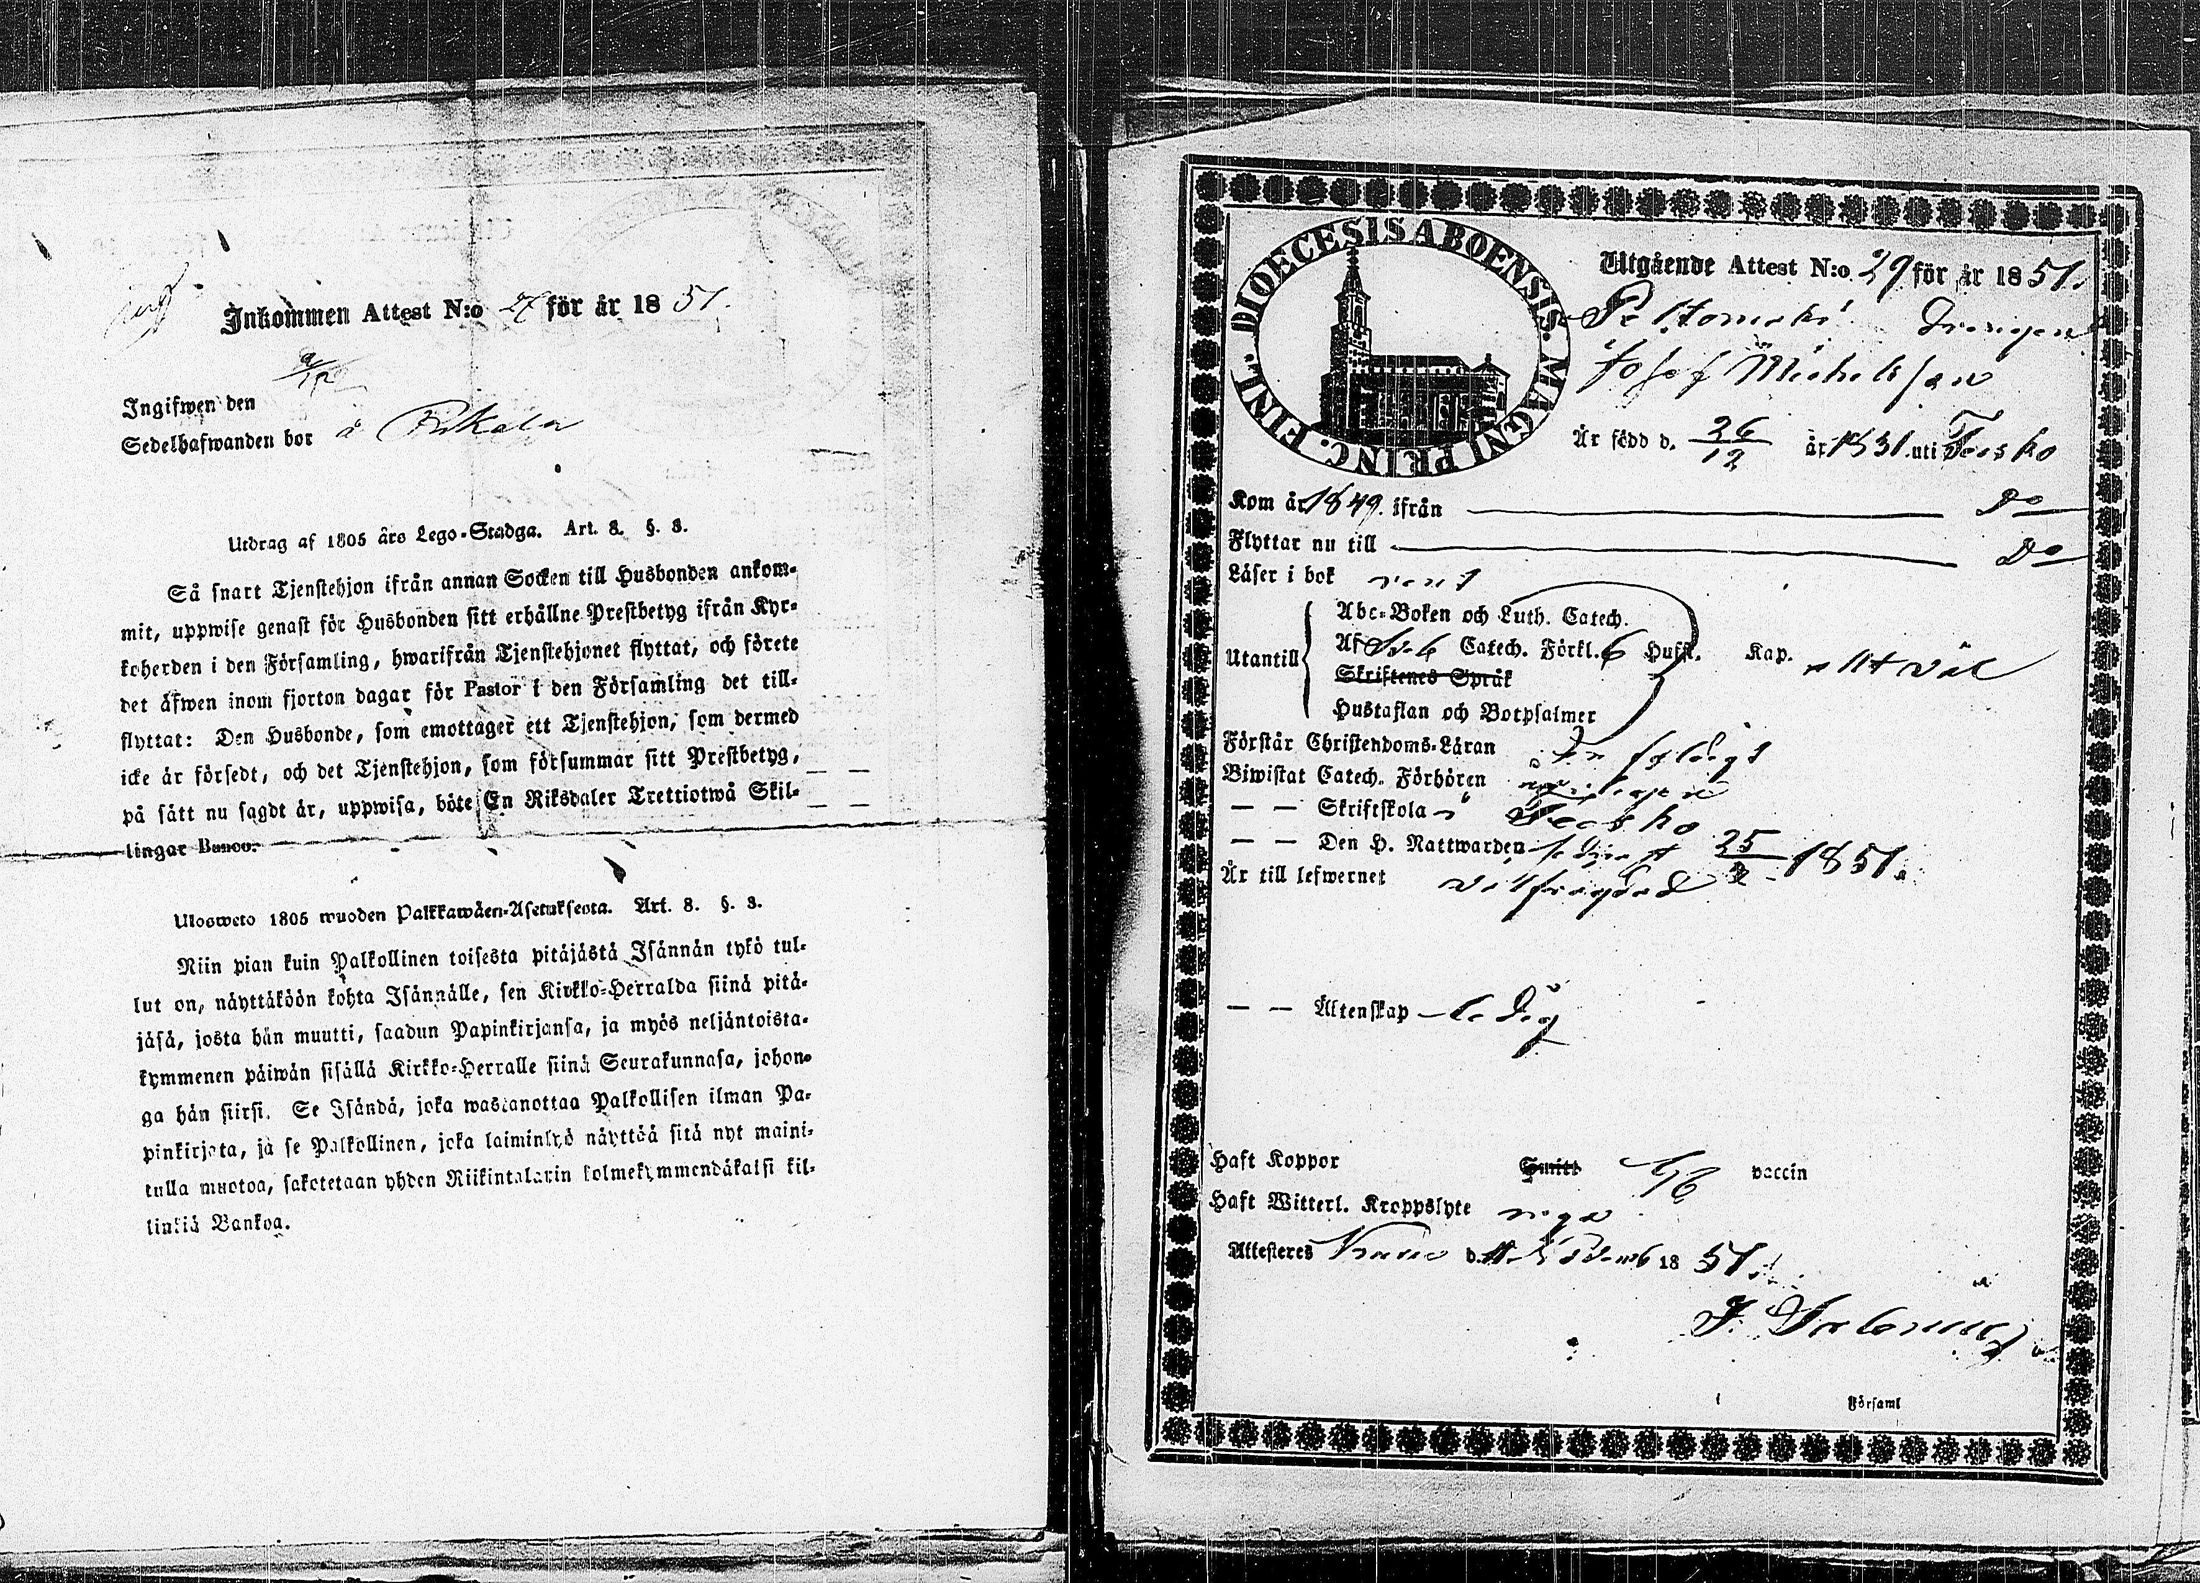 Inkommen Attest N:o för år 1851.
Ingifwen den 9/12
Sedelhafwanden bor å
Utdrag af 1805 års Lego-Stadga. Art. 8. §. 3.
Så snart Tjenstehjon ifrån annan Socken till Husbonden ankom-
mit, uppwise genast för Husbonden sitt erhållne Prestbetyg ifrån Kyr-
koherden i den Församling, hwarifrån Tjenstehjonet flyttat, och förete
det äfwen inom fjorton dagar för Pastor i den Församling det till-
flyttat: Den Husbonde, som emottager ett Tjenstehjon, som dermed
icke är försedt, och det Tjenstehjon, som försummar sitt Prestbetyg,
på sätt nu sagdt är, uppwisa, böte En Riksdaler Trettiotwå Skil-
lingar Banco.
Ulosweto 1805 wuoden Palkkawäen-Asetuksesta. Art. 8. §. 3.
Niin pian kuin Palkollinen toisesta pitäjästä Isännän tykö tul-
lut on, näyttäköön kohta Isännälle, sen Kirkko-Herralda siinä pitä-
jäsä, josta hän muutti, saadun Papinkirjansa, ja myös neljäntoista-
kymmenen päiwän sisällä Kirkko-Herralle siinä Seurakunnasa, johon-
ga hän siirsi. Se Isändä, joka wastanottaa Palkollisen ilman Pa-
pinkirjata, ja se Palkollinen, joka laiminlyö näyttää sitä nyt maini-
tulla muotoa, sakotetaan yhden Riikintalarin kolmekymmendäkaksi kil-
linkiä Bankoa.
DIOECESIS ABOENSIS. MAGNI PRINC. FINL.
Utgående Attest N:o 29 för år 1851.
Peltomäki Drengen
Josef Michelsson
Är född d. 26/12 år 1831. uti Teisko
Kom år 1849. ifrån Do
Flyttar nu till Do
Läser i bok rent
Utantill
Abc-Boken och Luth. Catech.
Af Sveb Catech. Förkl. 6 Hufst. Kap. allt väl
Skriftenes Språk
Hustaflan och Botpsalmer
Förstår Christendoms-Läran
Biwistat Catech. Förhören
— — Skriftskola i Teisko
— — Den H. Nattwarden sednast 25/ 1851.
Är till lefwernet välfrägdad
— — Äktenskap ledig
Haft Koppor Smitt vaccin
Haft Witterl. Kroppslyte inga
Attesteres d. Novemb 1851.
Församl